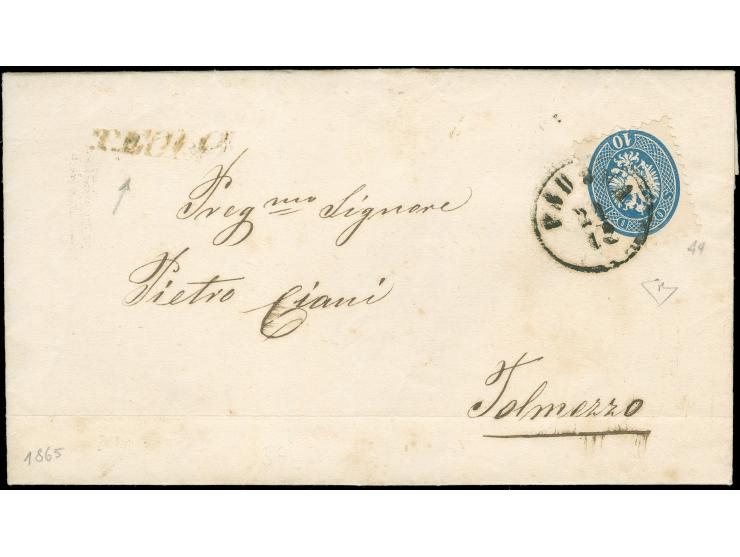 TEOLO
10
Preg.mo Signore
Pietro Ciani
Tolmezzo
44
1865